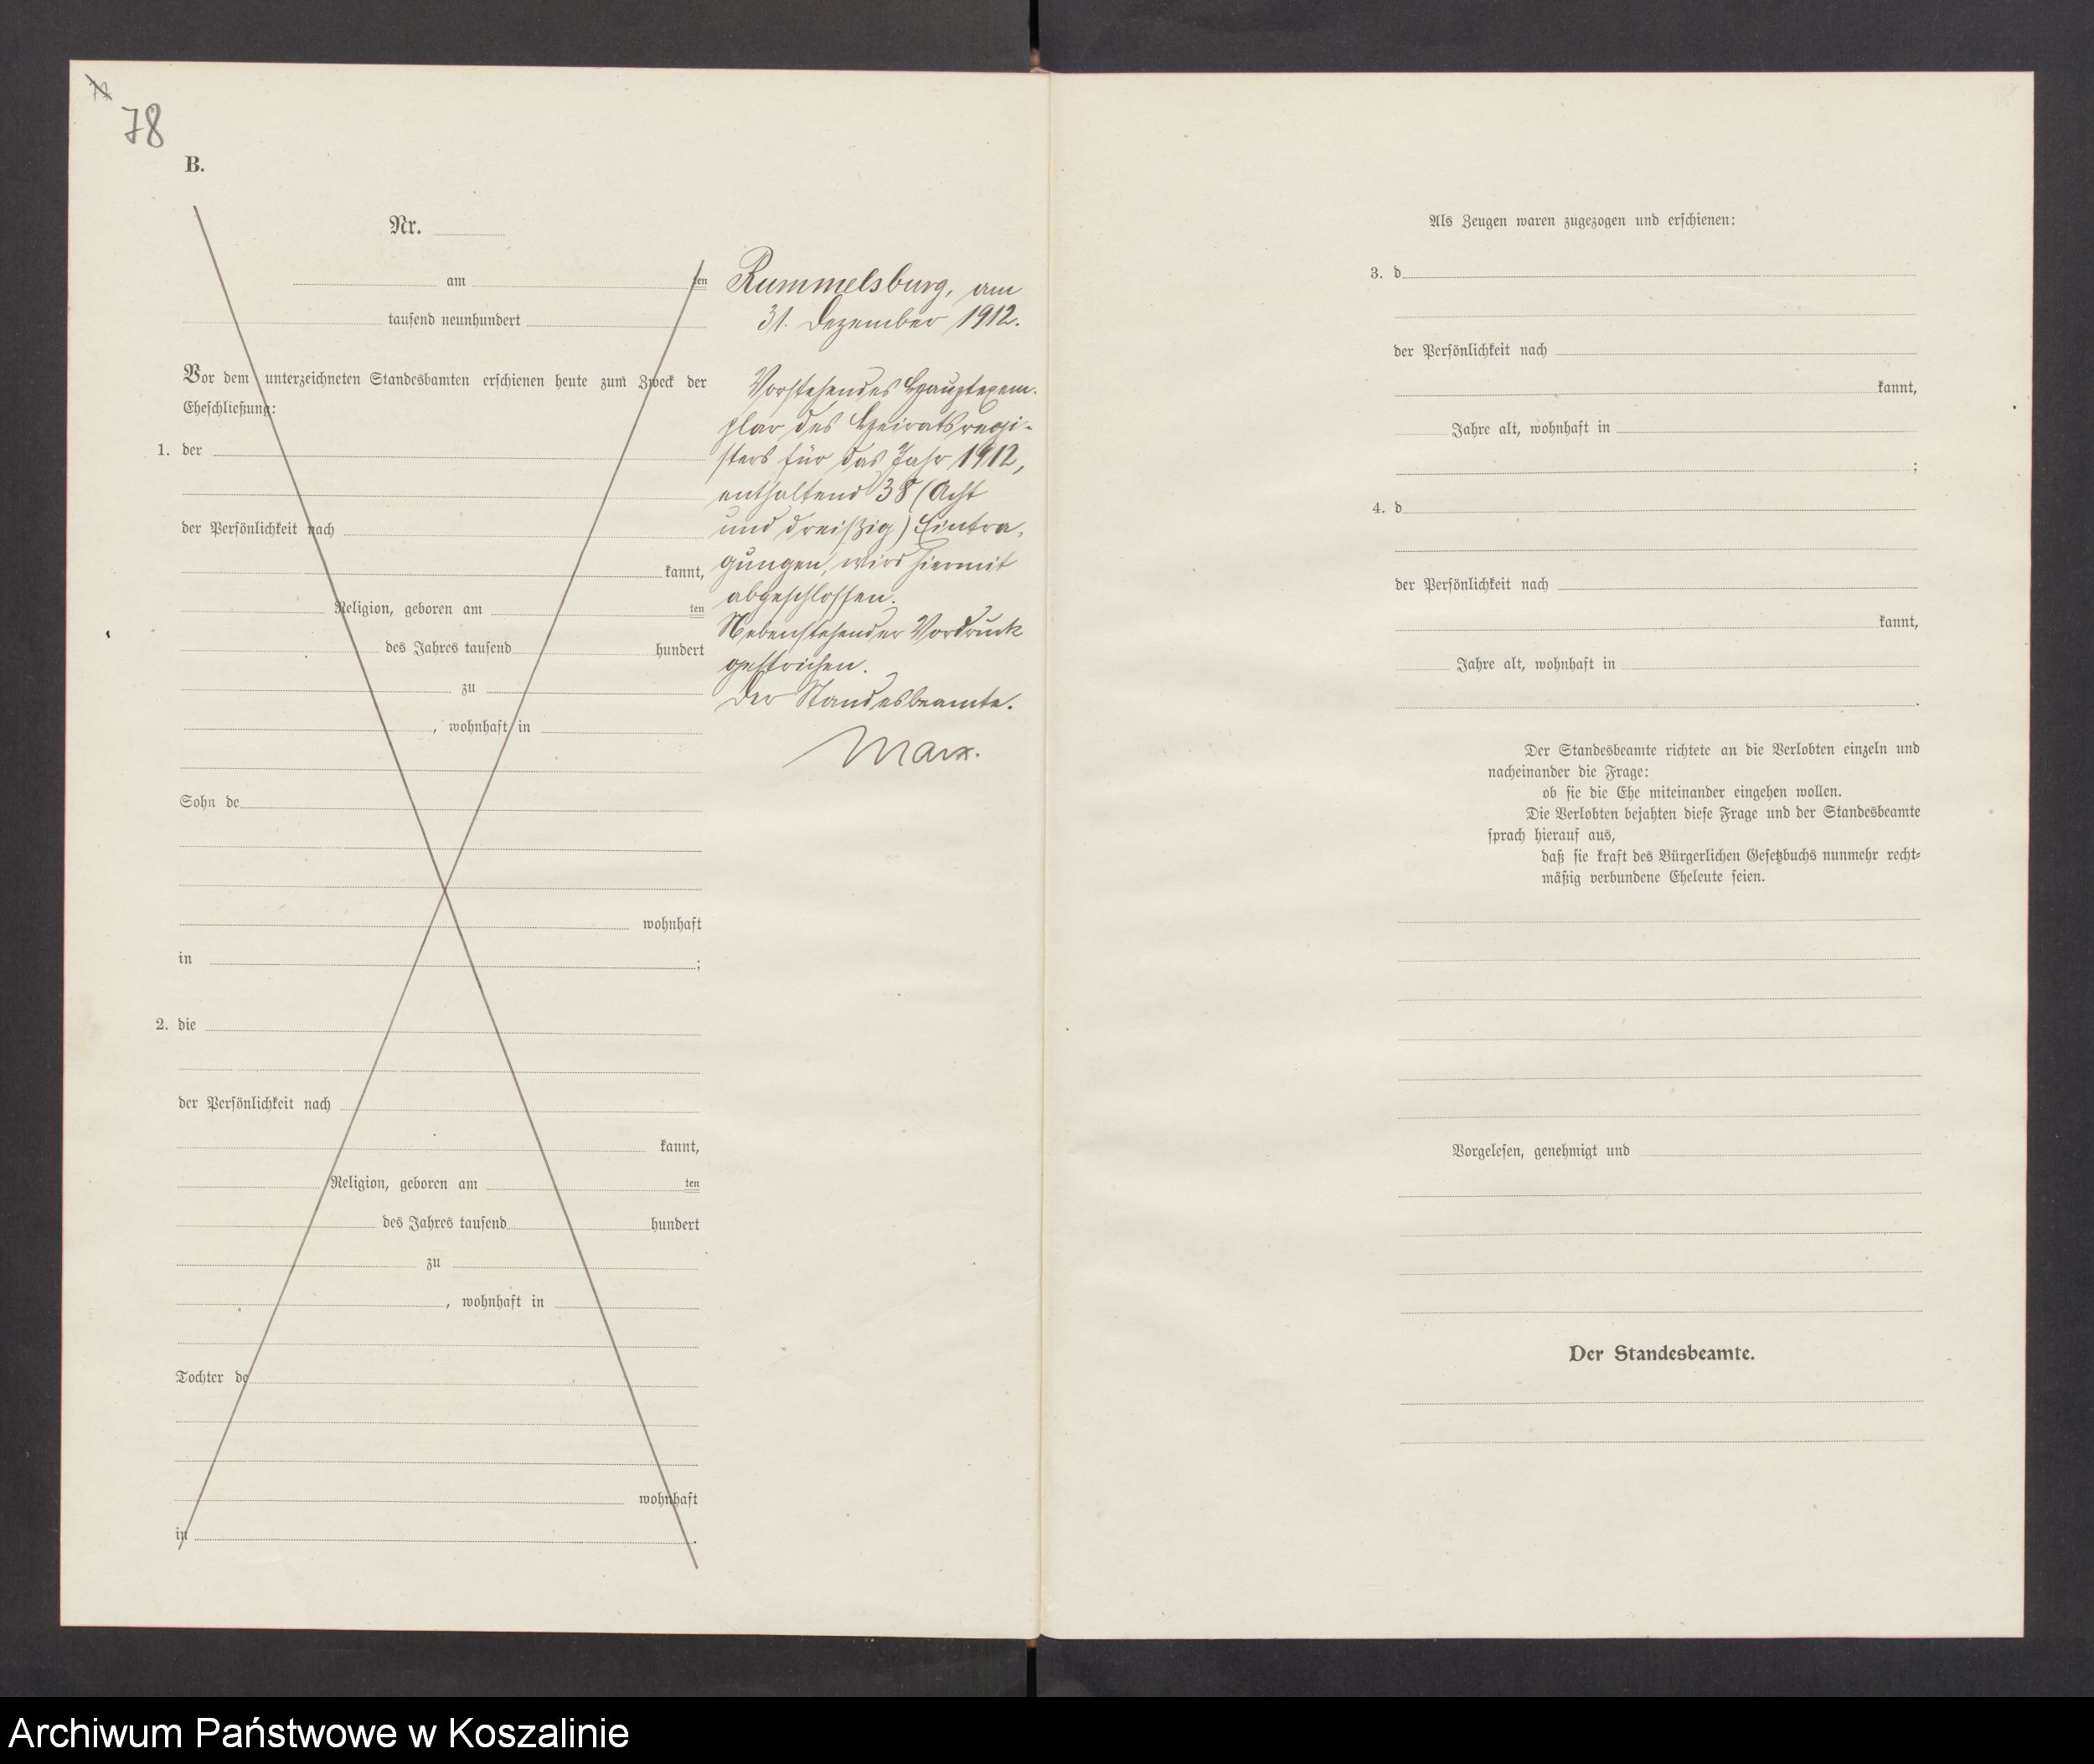 78
B.
Nr.
am ten
tausend neunhundert
Vor dem unterzeichneten Standesbamten erschienen heute zum Zweck der
Eheschließung:
1. der
der Persönlichkeit nach
kannt,
Religion, geboren am ten
des Jahres tausend hundert
zu
, wohnhaft in
Sohn de
wohnhaft
in ;
2. die
der Persönlichkeit nach
kannt,
Religion, geboren am ten
des Jahres tausend hundert
zu
, wohnhaft in
Tochter de
wohnhaft
in .
Rummelsburg, am
31. Dezember 1912.
Vorstehendes Hauptexem-
plar des Heiratsregi-
sters für das Jahr 1912,
enthaltend 38 (Acht
und dreißig) Eintra-
gungen, wird hiermit
abgeschlossen.
Nebenstehender Vordruck
gestrichen.
Der Standesbeamte.
Marx.
Als Zeugen waren zugezogen und erschienen:
3. d
der Persönlichkeit nach
kannt,
Jahre alt, wohnhaft in
;
4. d
der Persönlichkeit nach
kannt,
Jahre alt, wohnhaft in
.
Der Standesbeamte richtete an die Verlobten einzeln und
nacheinander die Frage:
ob sie die Ehe miteinander eingehen wollen.
Die Verlobten bejahten diese Frage und der Standesbeamte
sprach hierauf aus,
daß sie kraft des Bürgerlichen Gesetzbuchs nunmehr recht-
mäßig verbundene Eheleute seien.
Vorgelesen, genehmigt und
Der Standesbeamte.
Archiwum Państwowe w Koszalinie